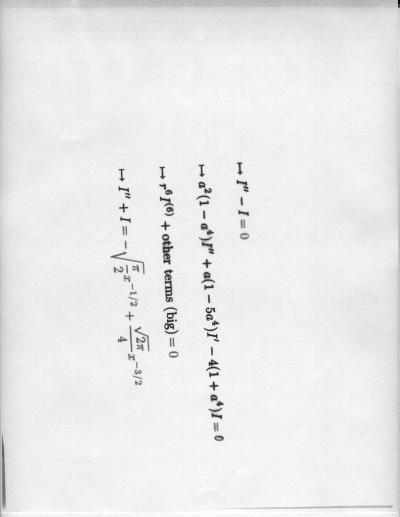 ↦ I'' − I = 0
↦ a²(1 − a⁴)I'' + a(1 − 5a⁴)I' − 4(1 + a⁴)I = 0
↦ r⁶I⁽⁶⁾ + other terms (big) = 0
↦ I'' + I = −√(π/2) x^{−1/2} + (√(2π)/4) x^{−3/2}